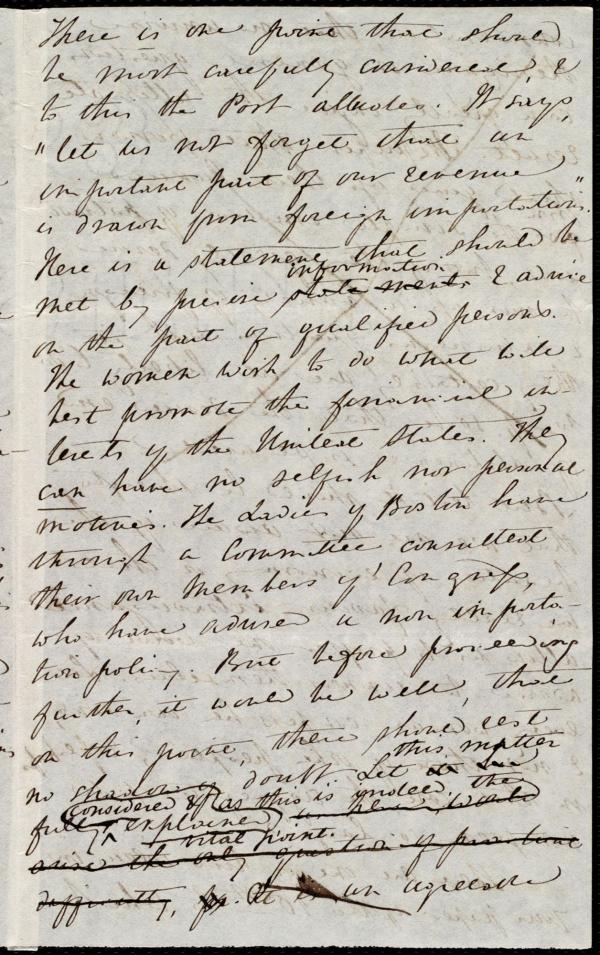 There is one point that should
be most carefully considered, &
to this the Post alludes. It says,
"let us not forget that an
important part of our revenue
is drawn from foreign importations."
Here is a statement that should be
met by precise information state ments & advice
on the part of qualified persons.
The women wish to do what will
best promote the financial in-
terests of the United States. They
can have no selfish nor personal
motives. The Ladies of Boston have
through a Committee consulted
their own Members of Congress,
who have advised a non importa-
tion policy. But before proceeding
further, it would be well, that
on this point, there should rest
no shadow of doubt. Let this matter be
considered & as this is indeed, the
fully explained, as here, would
vital point.
arise the only question of practical
difficulty, for. It is an agreeable